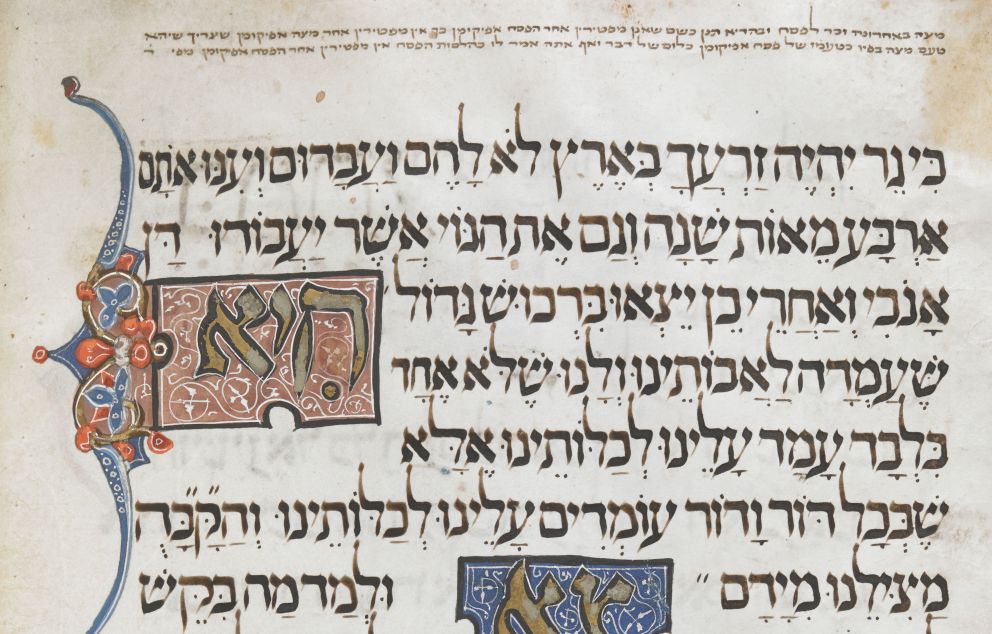 מצה באחרונה זכר לפסח ובהדיא תנן כשם שאין מפטירין אחר הפסח אפיקומן כך אין מפטירין אחר מצה אפיקומן שצריך שיהא
טעם מצה בפיו כטעמו של פסח אפיקומן כלום של דבר ואף אתה אמור לו כהלכות הפסח אין מפטירין אחר הפסח אפיקומן מפי
כִּי גֵר יִהְיֶה זַרְעֲךָ בְּאֶרֶץ לֹא לָהֶם וַעֲבָדוּם וְעִנּוּ אֹתָם
אַרְבַּע מֵאוֹת שָׁנָה וְגַם אֶת הַגּוֹי אֲשֶׁר יַעֲבוֹדוּ דָּן
אָנֹכִי וְאַחֲרֵי כֵן יֵצְאוּ בִּרְכוּשׁ גָּדוֹל
הִיא
שֶׁעָמְדָה לַאֲבוֹתֵינוּ וְלָנוּ שֶׁלֹּא אֶחָד
בִּלְבָד עָמַד עָלֵינוּ לְכַלּוֹתֵינוּ אֶלָּא
שֶׁבְּכָל דּוֹר וָדוֹר עוֹמְדִים עָלֵינוּ לְכַלּוֹתֵינוּ וְהַקָּבָּ״ה
מַצִּילֵנוּ מִיָּדָם״ צֵא וּלְמַד מַה בִּקֵּשׁ